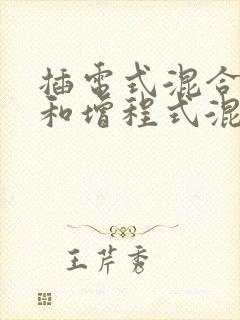 插电式混合
和增程式混
王芹秀